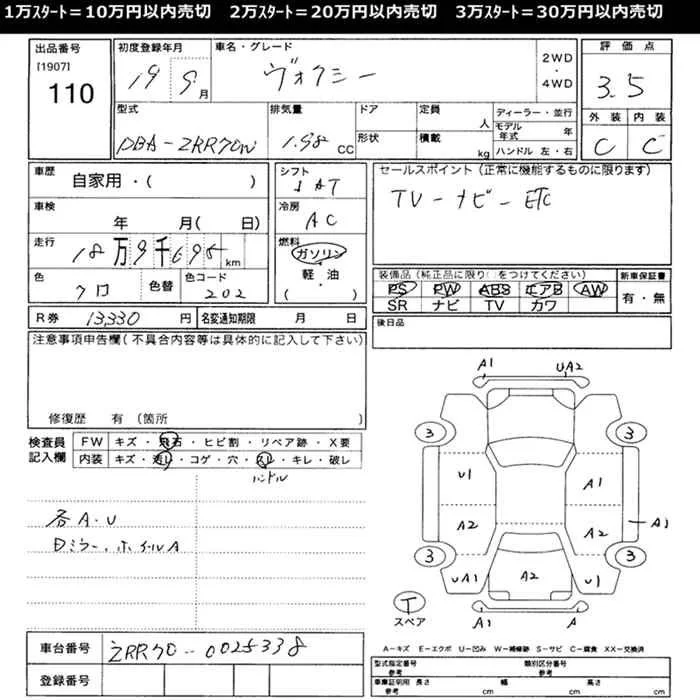 1万ｽﾀｰﾄ＝10万円以内売切　2万ｽﾀｰﾄ＝20万円以内売切　3万ｽﾀｰﾄ＝30万円以内売切
出品番号 初度登録年月 車名・グレード 2WD・4WD 評価点
[1907] 110 19 9月 ヴォクシー 3.5
型式 排気量 ドア 定員 人 ディーラー・並行 外装 内装
DBA-ZRR70W 1.98 CC 形状 積載 kg モデル年式 年 C C
ハンドル 左・右
車歴 自家用・( ) シフト AT セールスポイント(正常に機能するものに限ります)
車検 年 月( 日) 冷房 AC TV－ナビ－ETC
走行 18万9千695km 燃料 ガソリン
軽・油
( )
色 クロ 色替 色コード 202
装備品(純正品に限り をつけてください) 新車保証書
PS PW ABS エアB AW 有・無
SR ナビ TV カワ
R券 13,330円 名変通知期限 月 日 後日品
注意事項申告欄(不具合内容等は具体的に記入して下さい)
修復歴 有(箇所 )
検査員記入欄 FW キズ・飛石・ヒビ割・リペア跡・X要
内装 キズ・汚レ・コゲ・穴・スレ・キレ・破レ
ハンドル
各A・U
ドミラー、ホイルA
A1 UA2
3 3
U1 A1
A2 A2 A1
3 3
UA1 A2 U1
T スペア A1 A
車台番号 ZRR70-0025338
登録番号
A－キズ E－エクボ U－凹み W－補修跡 S－サビ C－腐食 XX－交換済
型式指定番号 参考 類別区分番号 参考
車庫証明用 参考 長さ cm 幅 cm 高さ cm